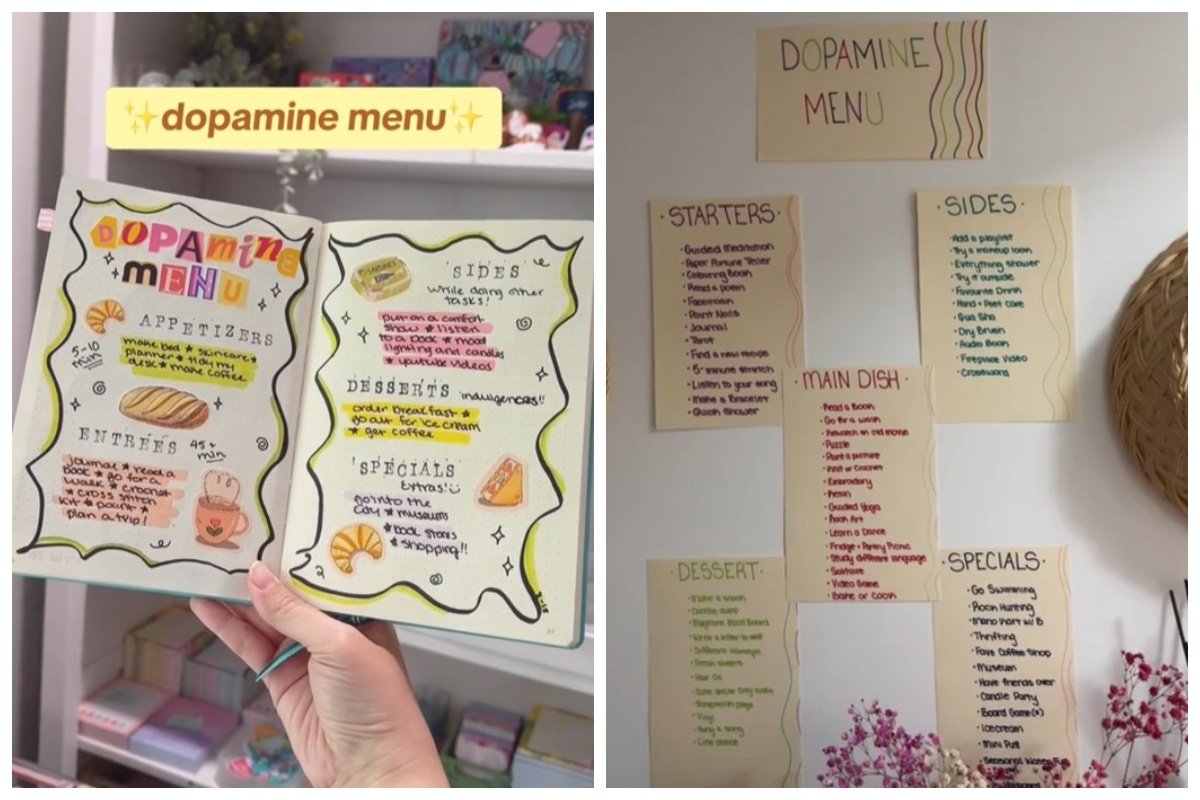 ✨dopamine menu✨
DOPAMINE
MENU
APPETIZERS
5-10
min
make bed ★ skincare ★
planner ★ tidy my
desk ★ make coffee
ENTRÉES
45+
min
journal ★ read a
book ★ go for a
walk ★ crochet
★ cross stitch
kit ★ paint ★
plan a trip!
SIDES
while doing other
tasks!
put on a comfort
show ★ listen
to a book ★ mood
lighting and candles
★ youtube videos
DESSERTS
indulgences!!
order breakfast ★
go out for ice cream
★ get coffee
SPECIALS
Extras!
go into the
city ★ museums
★ book stores
★ shopping!!
37
DOPAMINE
MENU
· STARTERS ·
• Guided Meditation
• Paper Fortune Teller
• Colouring Book
• Read a poem
• Facemask
• Paint Nails
• Journal
• Tarot
• Find a new recipe
• 5 minute stretch
• Listen to your song
• Make a Bracelet
• Quick Shower
· SIDES ·
• Add a playlist
• Try a makeup look
• Everything shower
• Try it outside
• Favourite Drink
• Hand + Feet care
• Gua Sha
• Dry Brush
• Audio Book
• Fireplace Video
• Crossword
· MAIN DISH ·
• Read a Book
• Go for a walk
• Rewatch an old movie
• Puzzle
• Paint a picture
• Knit or Crochet
• Embroidery
• Resin
• Guided Yoga
• Rock Art
• Learn a Dance
• Fridge + Pantry Picnic
• Study different language
• Solitaire
• Video Game
• Bake or Cook
· DESSERT ·
• Make a snack
• Doodle
• Board
• Write a letter to self
• Different hairstyle
• Fresh sheets
• Hair Oil
• Scrapbook page
• Vinyl
• Sing a song
• Line dance
· SPECIALS ·
• Go Swimming
• Rock Hunting
• Mario Kart w/ B
• Thrifting
• Fave Coffee Shop
• Museum
• Have friends over
• Candle Party
• Board Game(s)
• Icecream
• Mini Putt
• Seasonal